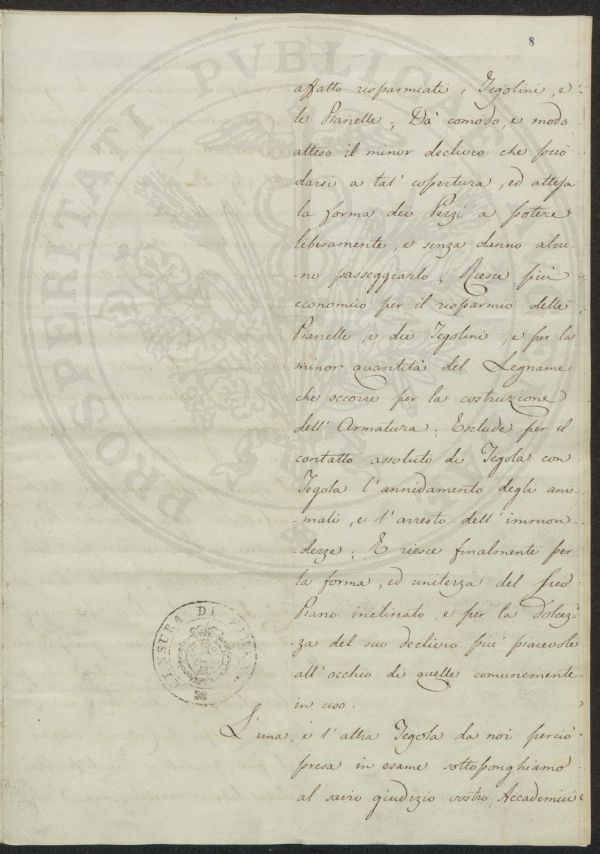 8
affatto risparmiati i Tegolini, e
le Pianelle; Dà comodo, e modo
atteso il minor declivio che può
darsi a tal' copertura, ed attesa
la forma dei Pezzi a potere
liberamente, e senza danno alcu-
-no passeggiarlo; Riesce più
economico per il risparmio delle
Pianelle, e dei Tegolini, e per la
minor quantità del Legname
che occorre per la costruzione
dell' Armatura; Esclude per il
contatto assoluto di Tegola con
Tegola l'annidamento degli ani-
-mali, e l'arresto dell' immon-
-dezze; E riesce finalmente per
la forma, ed unitezza del suo
Piano inclinato, e per la dolcez-
-za del suo declivio più piacevole
all' occhio di quelle comunemente
in uso.
L'una, e l'altra Tegola da noi perciò
presa in esame sottoponghiamo
al savio giudizio vostro, Accademici
PROSPERITATI PVBLICAE
CENSURA DI